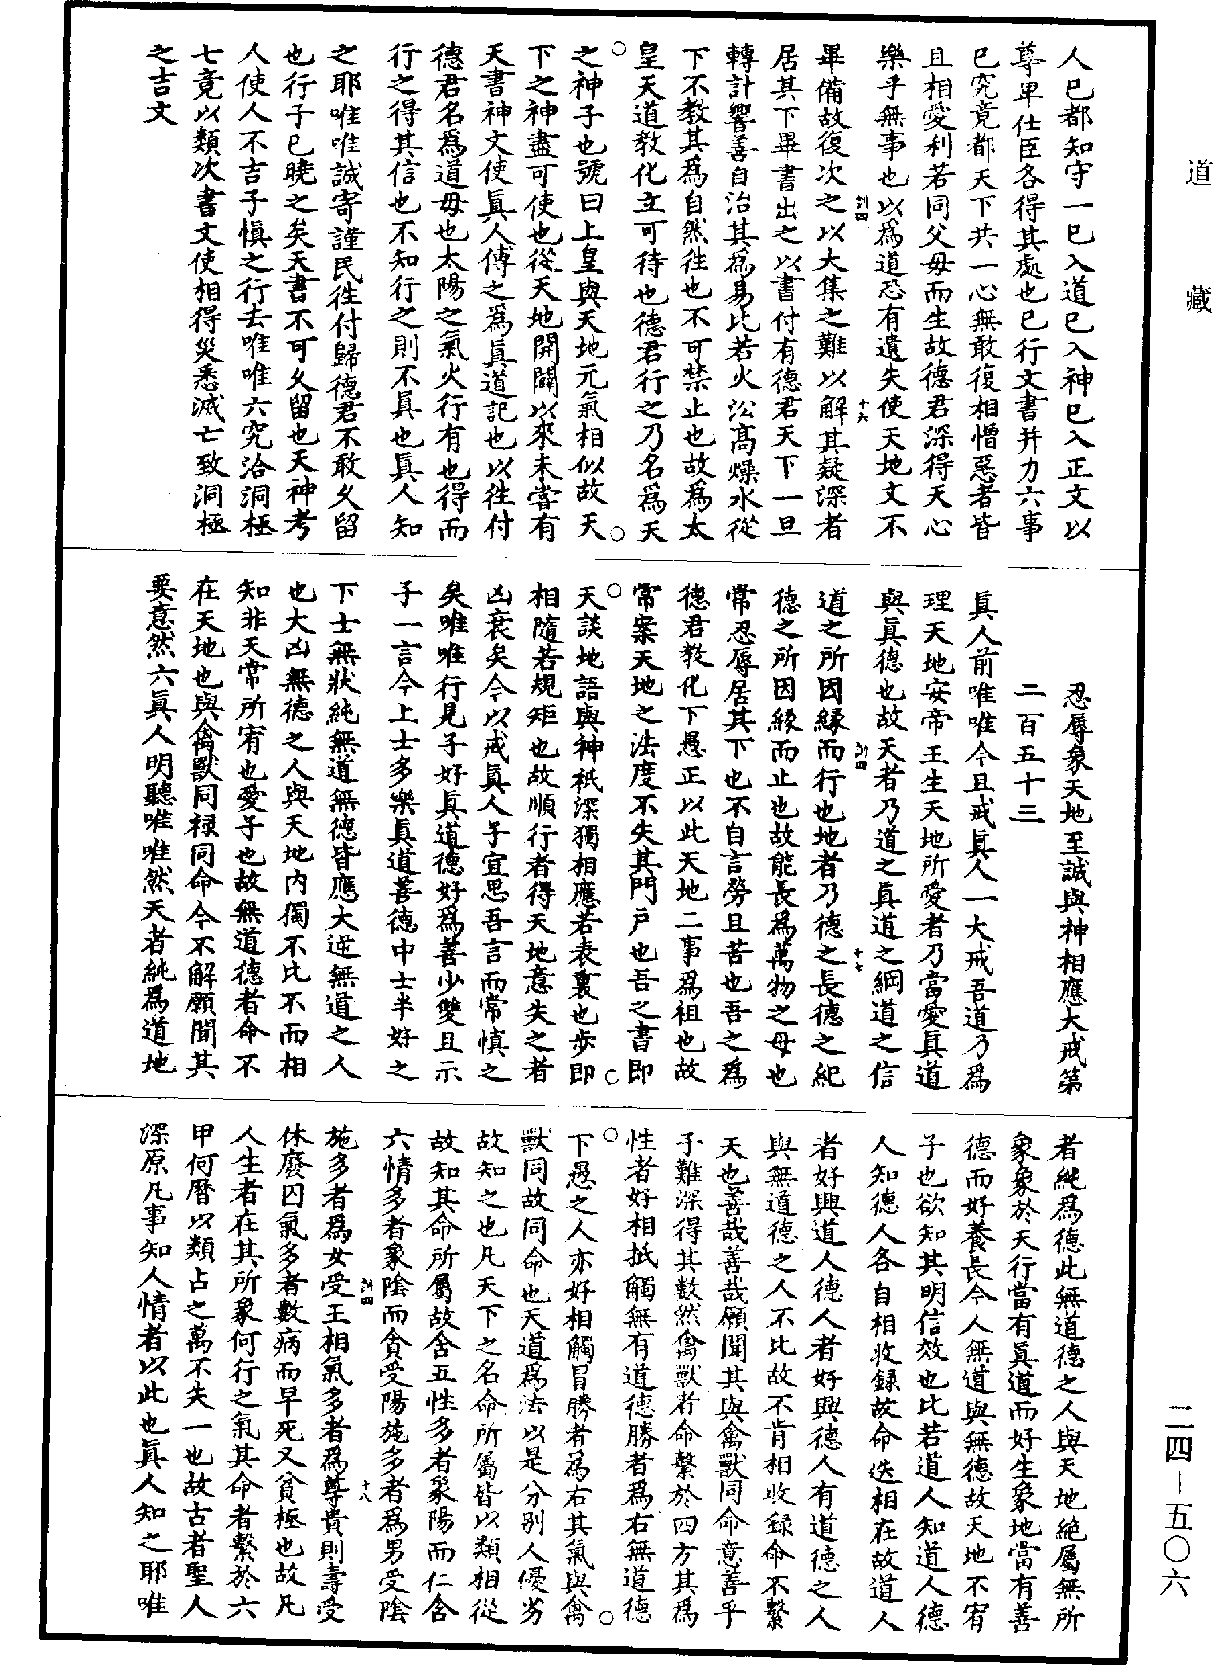 道藏
人已都知守一已入道已入神已入正文以
尊卑仕臣各得其處也已行文書并力六事
已究竟都天下共一心無敢復相憎惡者皆
且相愛利若同父母而生故德君深得天心
樂乎無事也以為道恐有遺失使天地文不
畢備故復次之以大集之難以解其疑深者
居其下畢書出之以書付有德君天下一旦
轉計響善自治其為易比若火㳂高燥水從
下不教其為自然往也不可禁止也故為太
皇天道教化立可待也德君行之乃名為天
之神子也號曰上皇與天地元氣相似故天
下之神盡可使也從天地開闢以來未嘗有
天書神文使眞人傳之為眞道記也以往付
德君名為道母也太陽之氣火行有也得而
行之得其信也不知行之則不眞也眞人知
之耶唯唯誠寄謹民往付歸德君不敢久留
也行子已曉之矣天書不可久留也天神考
人使人不吉子愼之行去唯唯六究洽洞極
七竟以類次書文使相得災悉滅亡致洞極
之吉文
忍辱象天地至誠與神相應大戒第
二百五十三
眞人前唯唯今且戒眞人一大戒吾道乃為
理天地安帝王生天地所愛者乃當愛眞道
與眞德也故天者乃道之眞道之綱道之信
道之所因緣而行也地者乃德之長德之紀
德之所因緣而止也故能長為萬物之母也
常忍辱居其下也不自言勞且苦也吾之為
德君教化下愚正以此天地二事為祖也故
常案天地之法度不失其門戶也吾之書即
天談地語與神祇深獨相應若表裏也步即
相隨若規矩也故順行者得天地意失之者
凶衰矣今以戒眞人子宜思吾言而常慎之
矣唯唯行見子好眞道德好為善少雙且示
子一言今上士多樂眞道善德中士半好之
下士無狀純無道無德皆應大逆無道之人
也大凶無德之人與天地內獨不比不而相
知非天常所宥也愛子也故無道德者命不
在天地也與禽獸同祿同命今不解願聞其
要意然六眞人明聽唯唯然天者純為道地
者純為德此無道德之人與天地絕屬無所
象象於天行當有眞道而好生象地當有善
德而好養長今人無道與無德故天地不宥
子也欲知其明信效也比若道人知道人德
人知德人各自相收錄故命迭相在故道人
者好興道人德人者好興德人有道德之人
與無道德之人不比故不肯相收錄命不繫
天也善哉善哉願聞其與禽獸同命意善乎
子難深得其數然禽獸者命繫於四方其為
性者好相抵觸無有道德勝者為右無道德
下愚之人亦好相觸冒勝者為右其氣與禽
獸同故同命也天道為法以是分別人優劣
故知之也凡天下之名命所屬皆以類相從
故知其命所屬故含五性多者象陽而仁含
六情多者象陰而貪受陽施多者為男受陰
施多者為女受王相氣多者為尊貴則壽受
休廢囚氣多者數病而早死又貧極也故凡
人生者在其所象何行之氣其命者繫於六
甲何曆以類占之萬不失一也故古者聖人
深原凡事知人情者以此也眞人知之耶唯
二四–五〇六